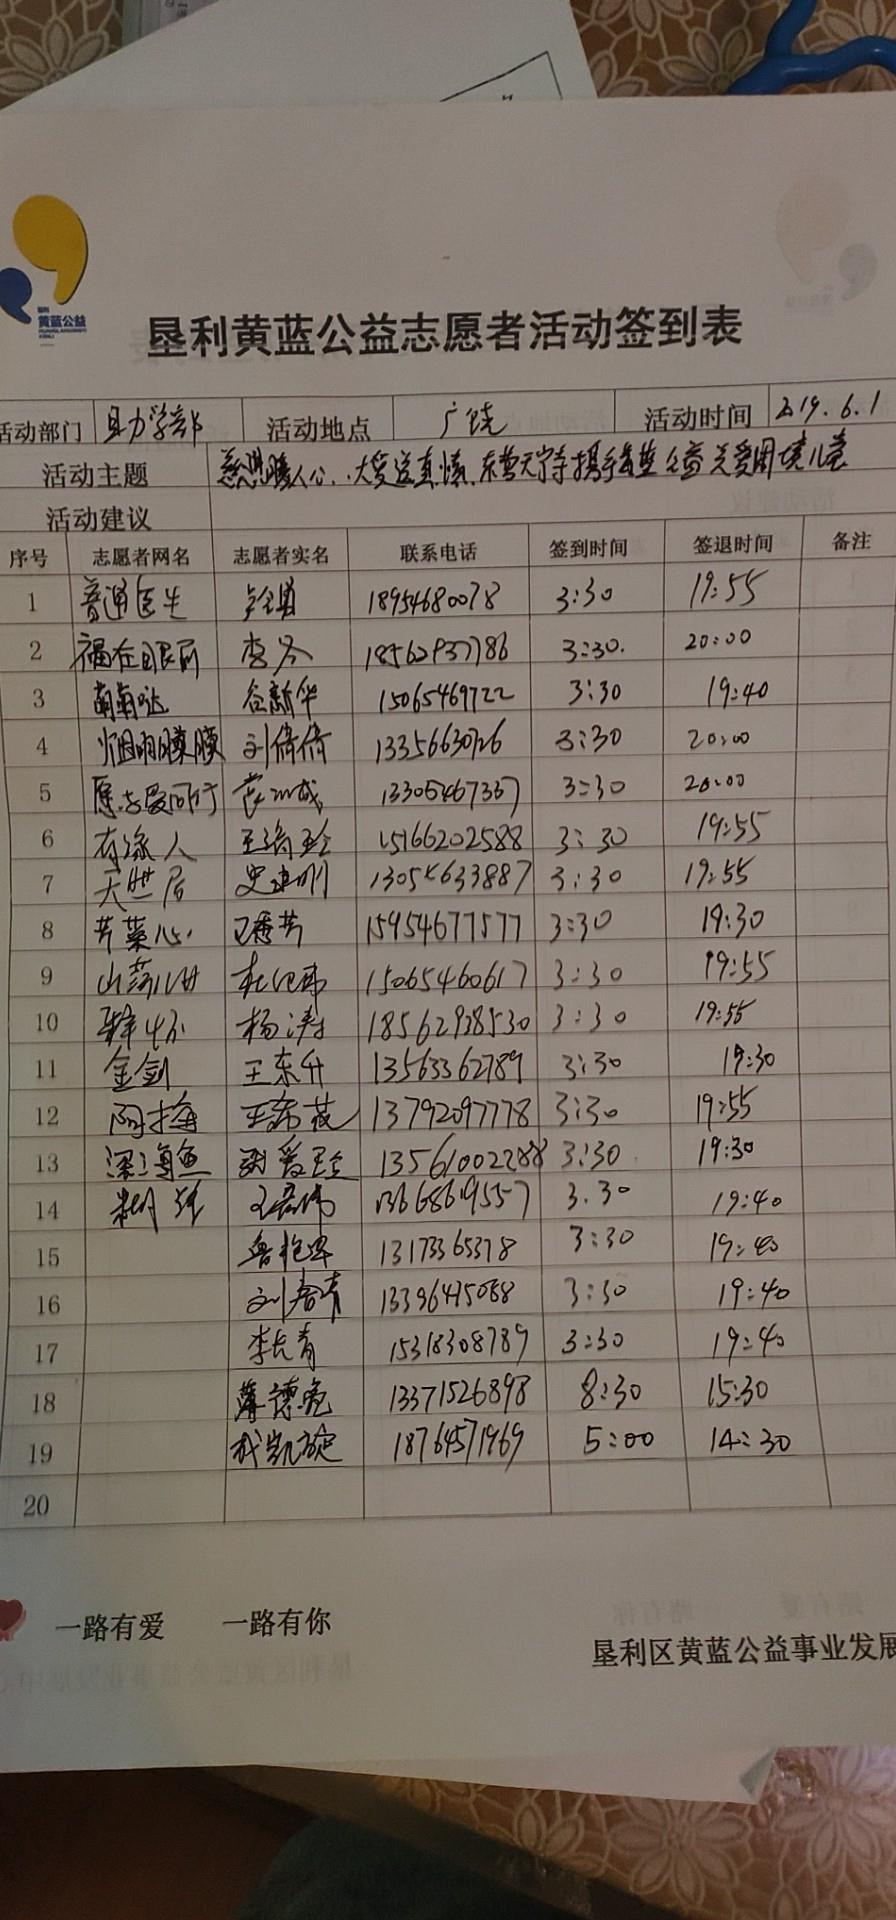 黄蓝公益
垦利黄蓝公益志愿者活动签到表
活动部门 助学部 活动地点 广饶 活动时间 2019.6.1
活动主题 大爱送真情 东营天宁寺携手 公益关爱困境儿童
活动建议
序号 志愿者网名 志愿者实名 联系电话 签到时间 签退时间 备注
1 普通医生 18954680078 3:30 19:55
2 福在眼前 李冬 18562937786 3:30. 20:00
3 南南哒 谷新华 15065469722 3:30 19:40
4 刘倩倩 13356630126 3:30 20:00
5 13305467337 3:30 20:00
6 有缘人 王海玲 15166202588 3:30 19:55
7 史建刚 13054633887 3:30 19:55
8 芹菜心 15954677577 3:30 19:30
9 15065460617 3:30 19:55
10 杨涛 18562938530 3:30 19:55
11 金剑 王东升 13563362789 3:30 19:30
12 阿梅 13792097778 3:30 19:55
13 深海鱼 13561002288 3:30 19:30
14 13668619557 3.30 19:40
15 13173365378 3:30 19:40
16 刘春青 13396475088 3:30 19:40
17 李长青 15318308789 3:30 19:40
18 薄德 13371526898 8:30 15:30
19 18764571969 5:00 14:30
20
一路有爱 一路有你
垦利区黄蓝公益事业发展